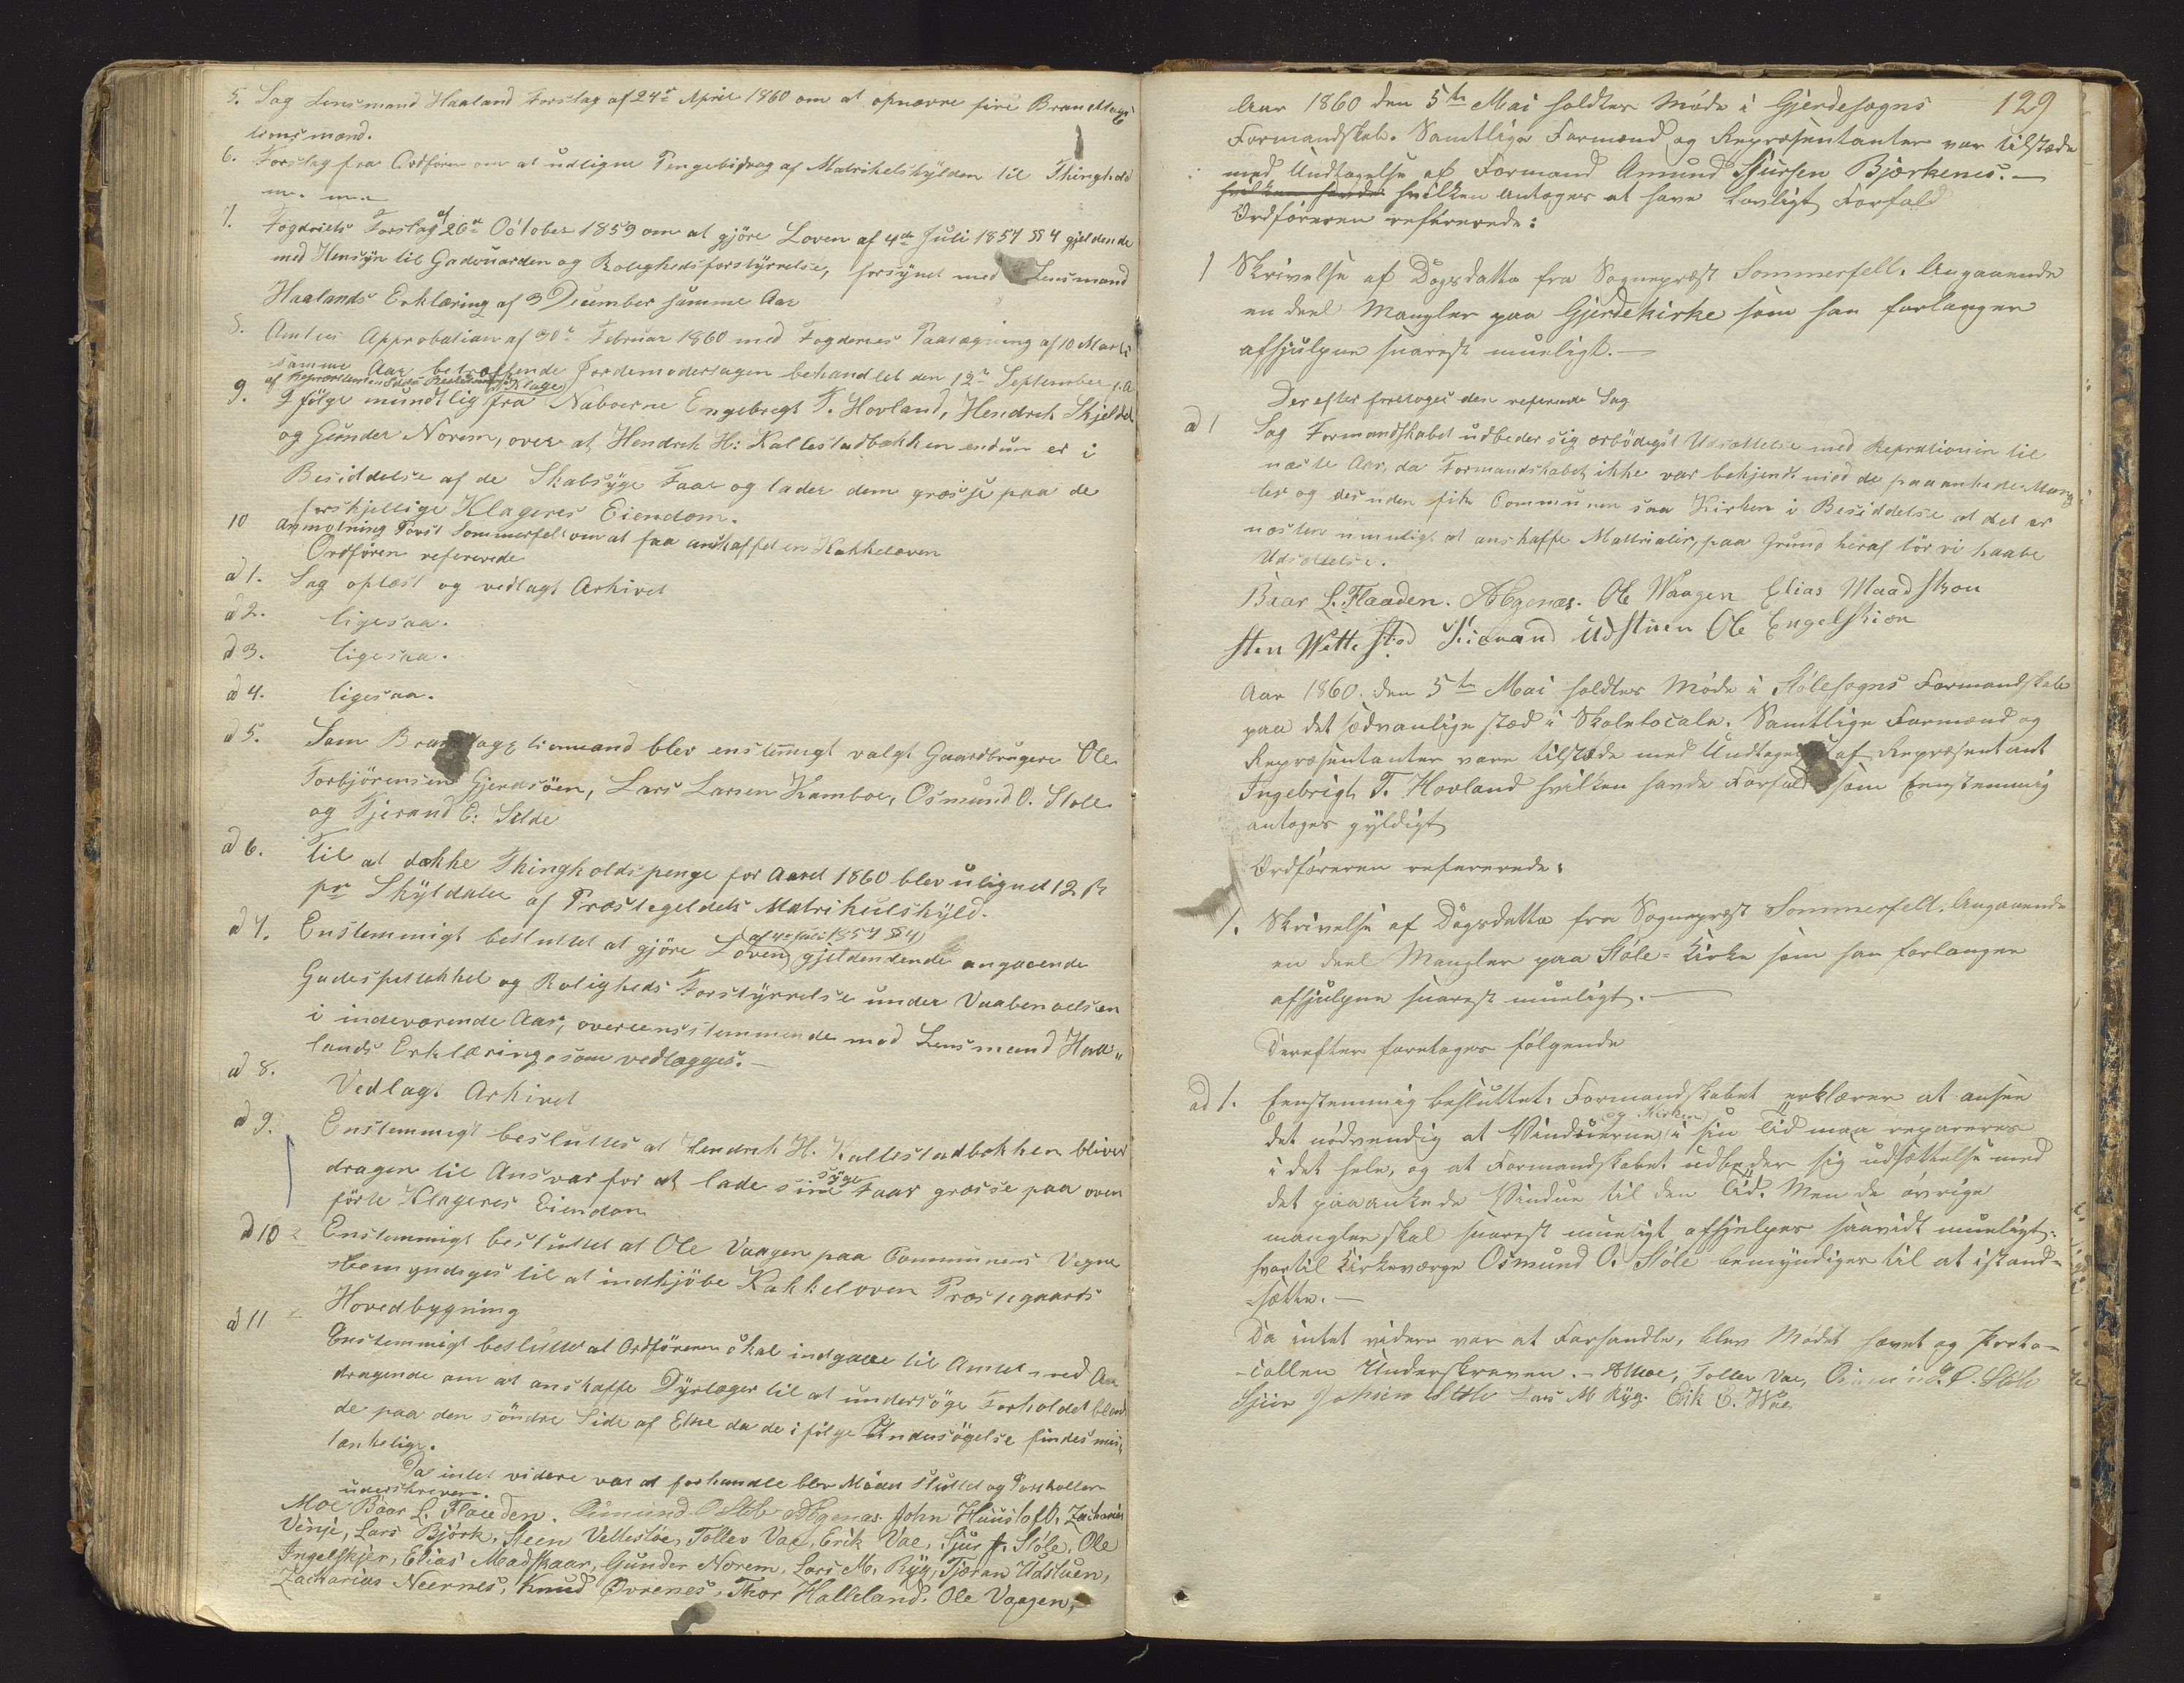 5. Sag Lensmand Haaland Forslag af 24de April 1860 om at opnævne fire Brandtaxa
tionsmænd.
6. Forslag fra Ordføren om at udligne Pengebidrag af Matrikelskylden til Thinghold
m. m.
7. Fogderiets Forslag af 26de October 1859 om at gjöre Loven af 4de Juli 1857 § 4 gjeldende
med Hensyn til Gadeuorden og Rolighedsforstyrrelse, forsynet med Lensmand
Haalands Erklæring af 3 December samme Aar
8. Amtets Approbation af Februar 1860 med Fogderies Paategning af 10 Marts
samme Aar betræffende Jordemodersagen behandlet den 12te September f. A
af
9. I følge mundtlig Klage fra Naboerne Engebregt T. Hovland, Hendrik Skjeldal
og Gunder Norem, over at Hendrik H: Kallestadbakken endnu er i
Besiddelse af de Skabsyge Faar og lader dem græsse paa de
forskjellige Klageres Eiendom.
10 Anmodning Pors Sommerfelt om at faa anskaffet en Kakkeloven
Ordføren refererede
ad 1. Sag oplæst og vedlagt Arkivet
ad 2. ligesaa.
ad 3. ligesaa.
ad 4. ligesaa.
ad 5. Som Brandtagtionsmand blev enstemigt valgt Gaardbrugere Ole
Torbjörensen Gjerdsöen, Lars Larsen Kamboe, Osmund O. Stole
og Tjerand E: Silde
ad 6. Til at dække Thingholdspenge for Aaret 1860 blev ulignet 12 ß
pr Skyldaler af Præstegeldets Matrikulskyld.
ad 7. Enstemmigt besluttet at gjöre Loven (af 4de Juli 1857 § 4) gjeldendende angaaende
Gadespettakkel og Roligheds Forstyrrelse under Vaabenoelsen
i indeværende Aar, overeensstemmende med Lensmand Haa„
lands Erklæring som vedlægges.—
ad 8. Vedlagt Arkivet
ad 9. Enstemmigt besluttes at Hendrik H. Kallestadbakken bliver
dragen til Ansvar for at lade sine syge Faar græsse paa oven
förte Klageres Eiendom
ad 10 Enstemmigt besluttet at Ole Vaagen paa Communens Vegne
bemyndiges til at indkjöbe Kakkeloven Præstegaards
Hovedbygning
ad 11 Enstemmigt besluttet at Ordföreren skal indgaae til Amtet med An
dragende om at anskaffe Dyrlæger til at undersöge Forholdet bland
de paa den söndre Side af Elve da de i fölge Undersögelse findes mis„
tænkelige.
Da intet videre var at forhandle blev Mödet sluttet og Protokollen
underskreven.
Moe Baar L. Flaaden. Osmund O Stole AEgenæs. John Huustoft, Zacharias
Vinje, Lars Björk, Steen Vettestøe, Tollev Vae, Erik Vae, Sjur J. Støle, Ole
Ingelskjer, Elias Madskaar, Gunder Norem, Lars M. Ryg, Tjeran Udstuen,
Zacharias Neernes, Knud Øvrenes, Thor Halleland. Ole Vaagen,
129
Aar 1860 den 5te Mai holdtes Möde i Gjerdesogns
Formandskab. Samtlige Formænd og Repræsentanter var tilstæde
med Undtagelse af Formand Amund Sjursen Bjørkenes.—
hvilken havde hvilken antoges at have Lovligt Forfald
Ordföreren refererede:
1 Skrivelse af Dagsdatto fra Sognepræst Sommerfelt. Angaaende
en deel Mangler paa Gjerdekirke som han forlanger
afhjulpne snarest mueligt.—
Derefter foretoges den referende Sag
ad 1 Sag Formandskabet udbeder sig ærbödigst Udsættelse med Reprationin til
næste Aar, da Formandskabet ikke var bekjendt med de paaankede Mang
ler og desuden fik Communen saa Kirken i Besiddelse at det er
næsten umuligt at anskaffe Mattrialer, paa Grund heraf tör vi haabe
Udsættelse.
Baar L. Flaaden. AEgenæs. Ole Waagen Elias Maadskou
Sten Wettestød Kierand Udstuen Ole Engelskiøn
Aar 1860. den 5te Mai holdtes Möde i Stólesogns Formandskab
paa det sædvanlige stæd i Skolelocale. Samtlige Formænd og
Repræsentanter vare tilstæde med Undtagelse af Repræsentant
Ingebrigt T. Hovland hvilken havde Forfald som Eenstemmig
antoges gyldigt
Ordföreren refererede:
1. Skrivelse af Dagsdatto fra Sognepræst Sommerfelt. Angaaende
en deel Mangler paa Stóle-Kirke som han forlanger
afhjulpne snarest mueligt.—
Derefter foretoges fölgende
ad 1. Eenstemmig besluttet: Formandskabet erklærer at ansee
det nödvendig at Vinduerne og Kirken i sin Tid maa repareres
i det hele, og at Formandskabet udbeder sig udsættelse med
det paaankede Vindue til den Tid. Men de övrige
mangler skal snarest mueligt afhjelpes saavidt mueligt,
hvortil Kirkeværge Osmund O. Støle bemyndiges til at istand-
-sætte.—
Da intet videre var at Forhandle, blev Mödet hævet og Proto-
-collen Underskreven.- AMoe, Tollev Vae, Osmund O. Støle
Sjur Johnsen Støle Lars M Ryg. Erik E. Wae